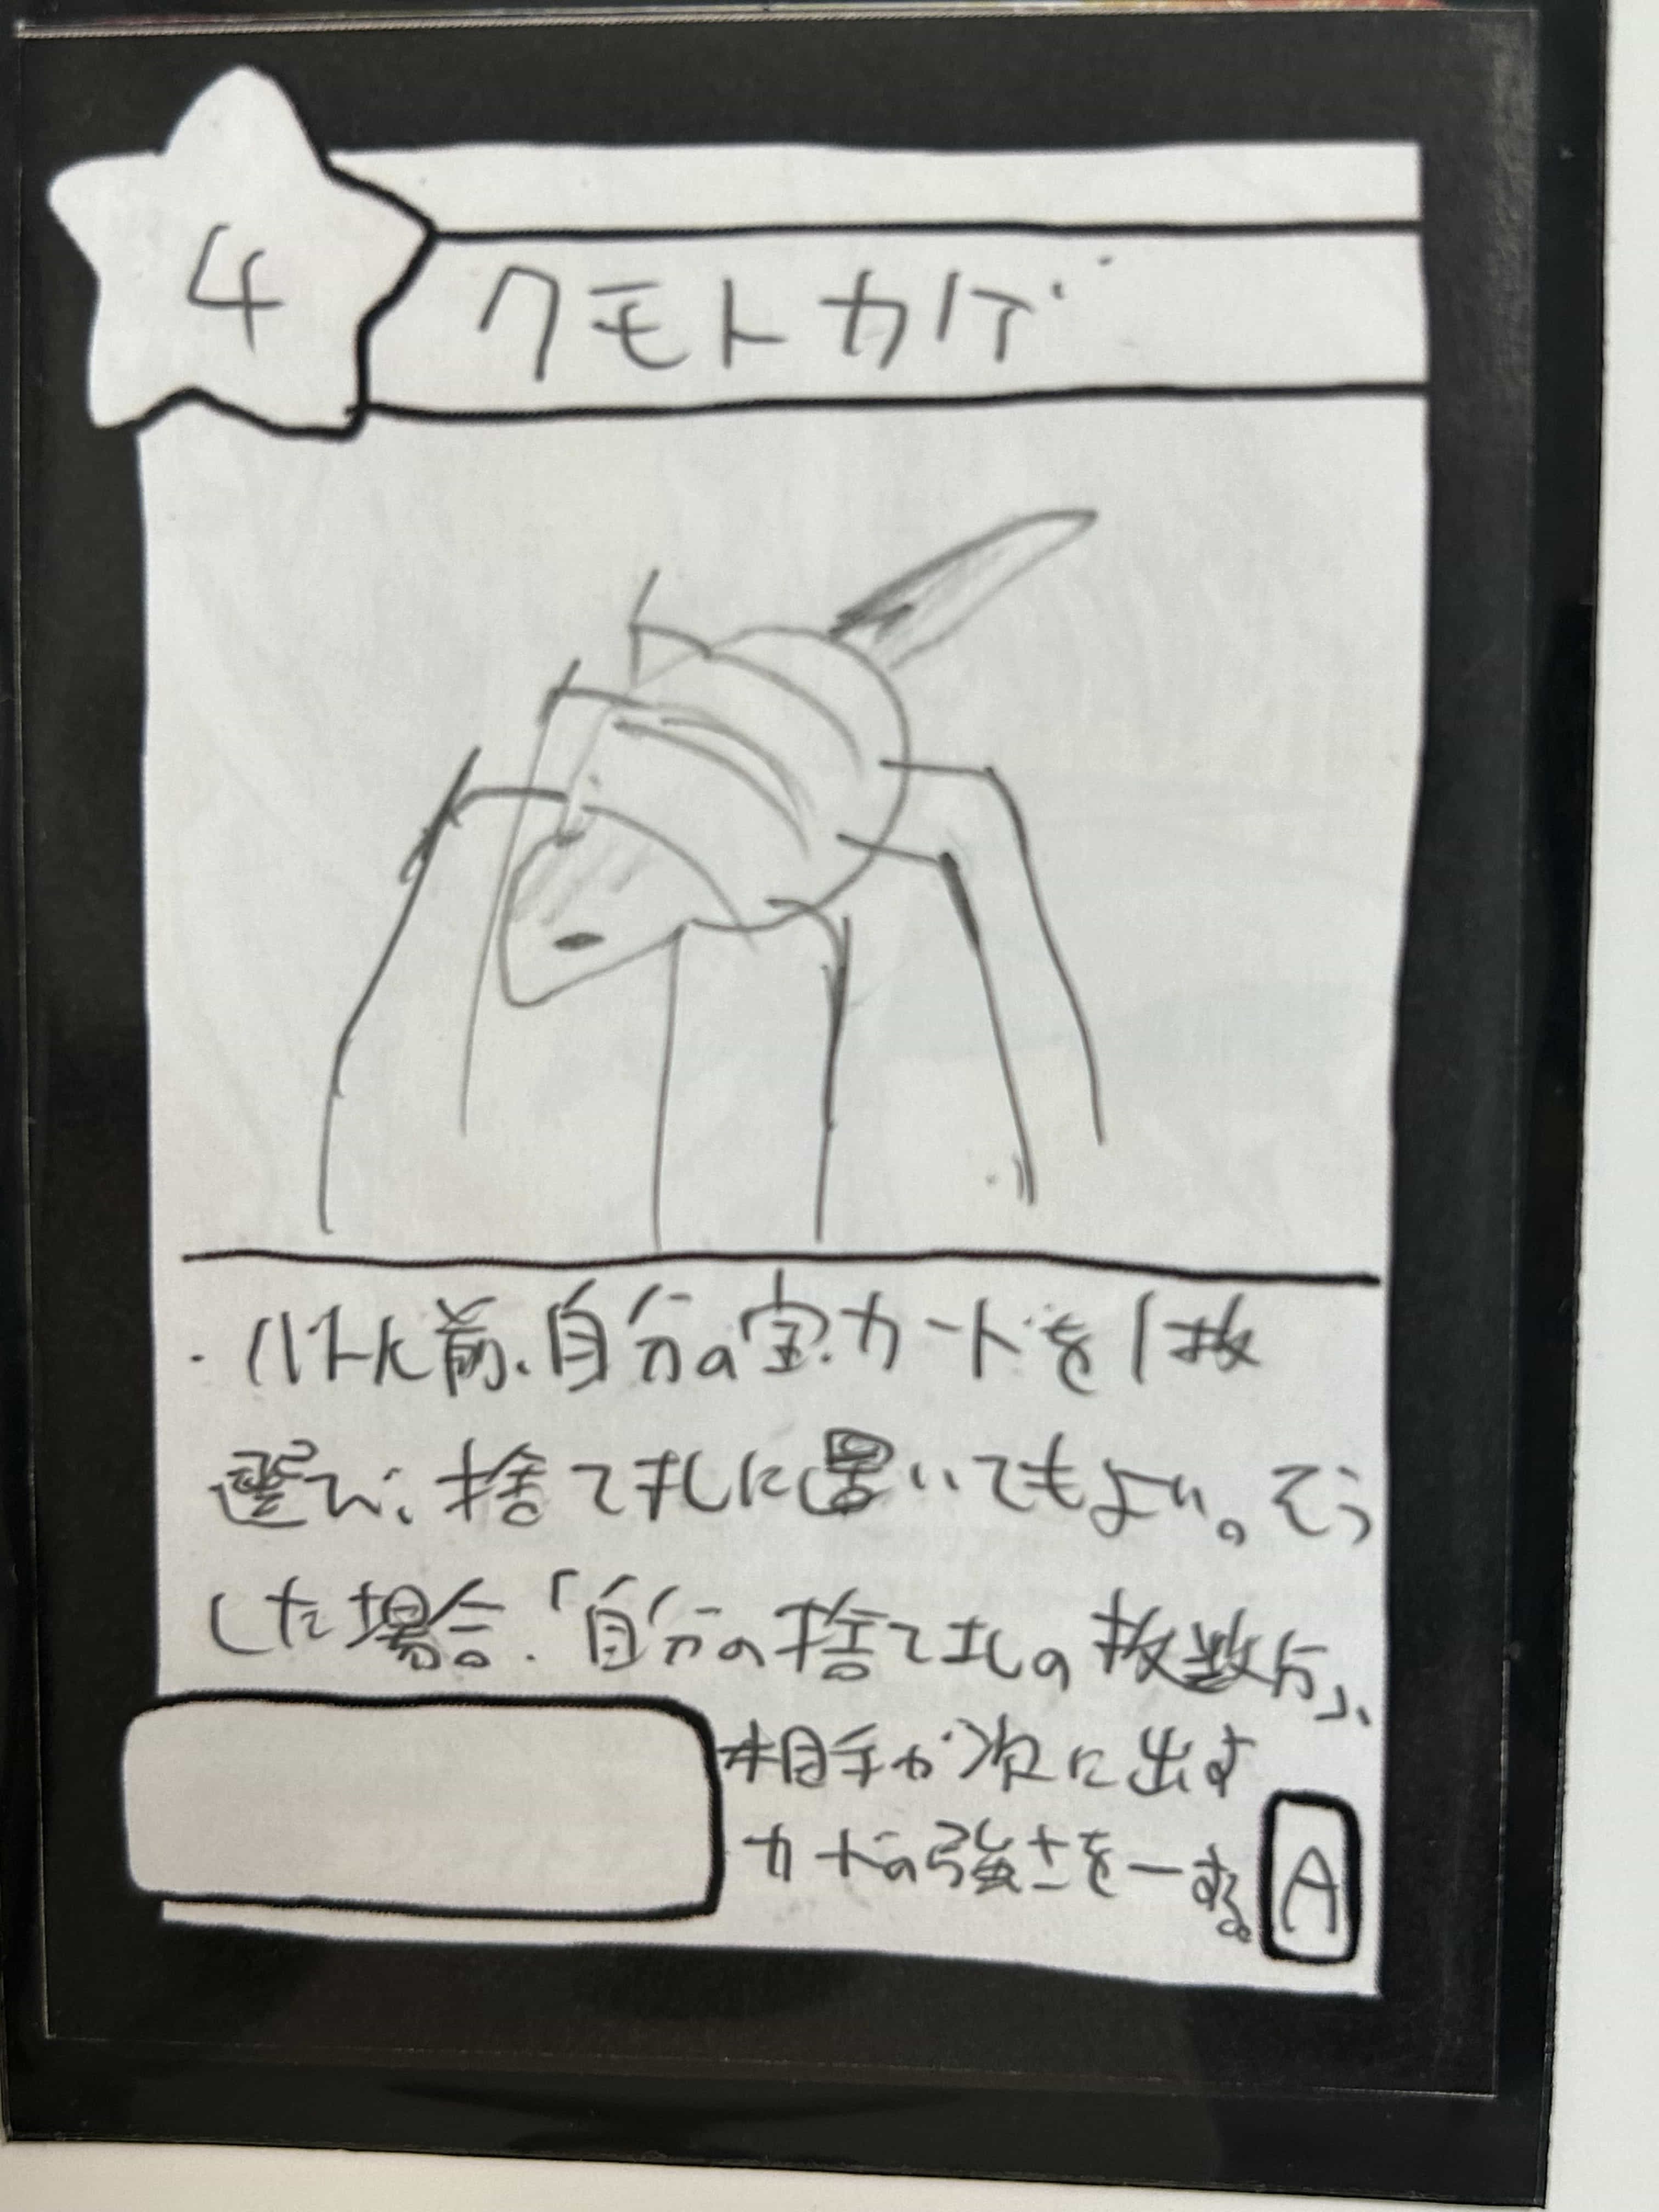 4
クモトカゲ
・バトル前、自分の宝カードを1枚
選び、捨て札に置いてもよい。そう
した場合、「自分の捨て札の枚数分」、
相手が次に出す
カードの強さを－する。
A